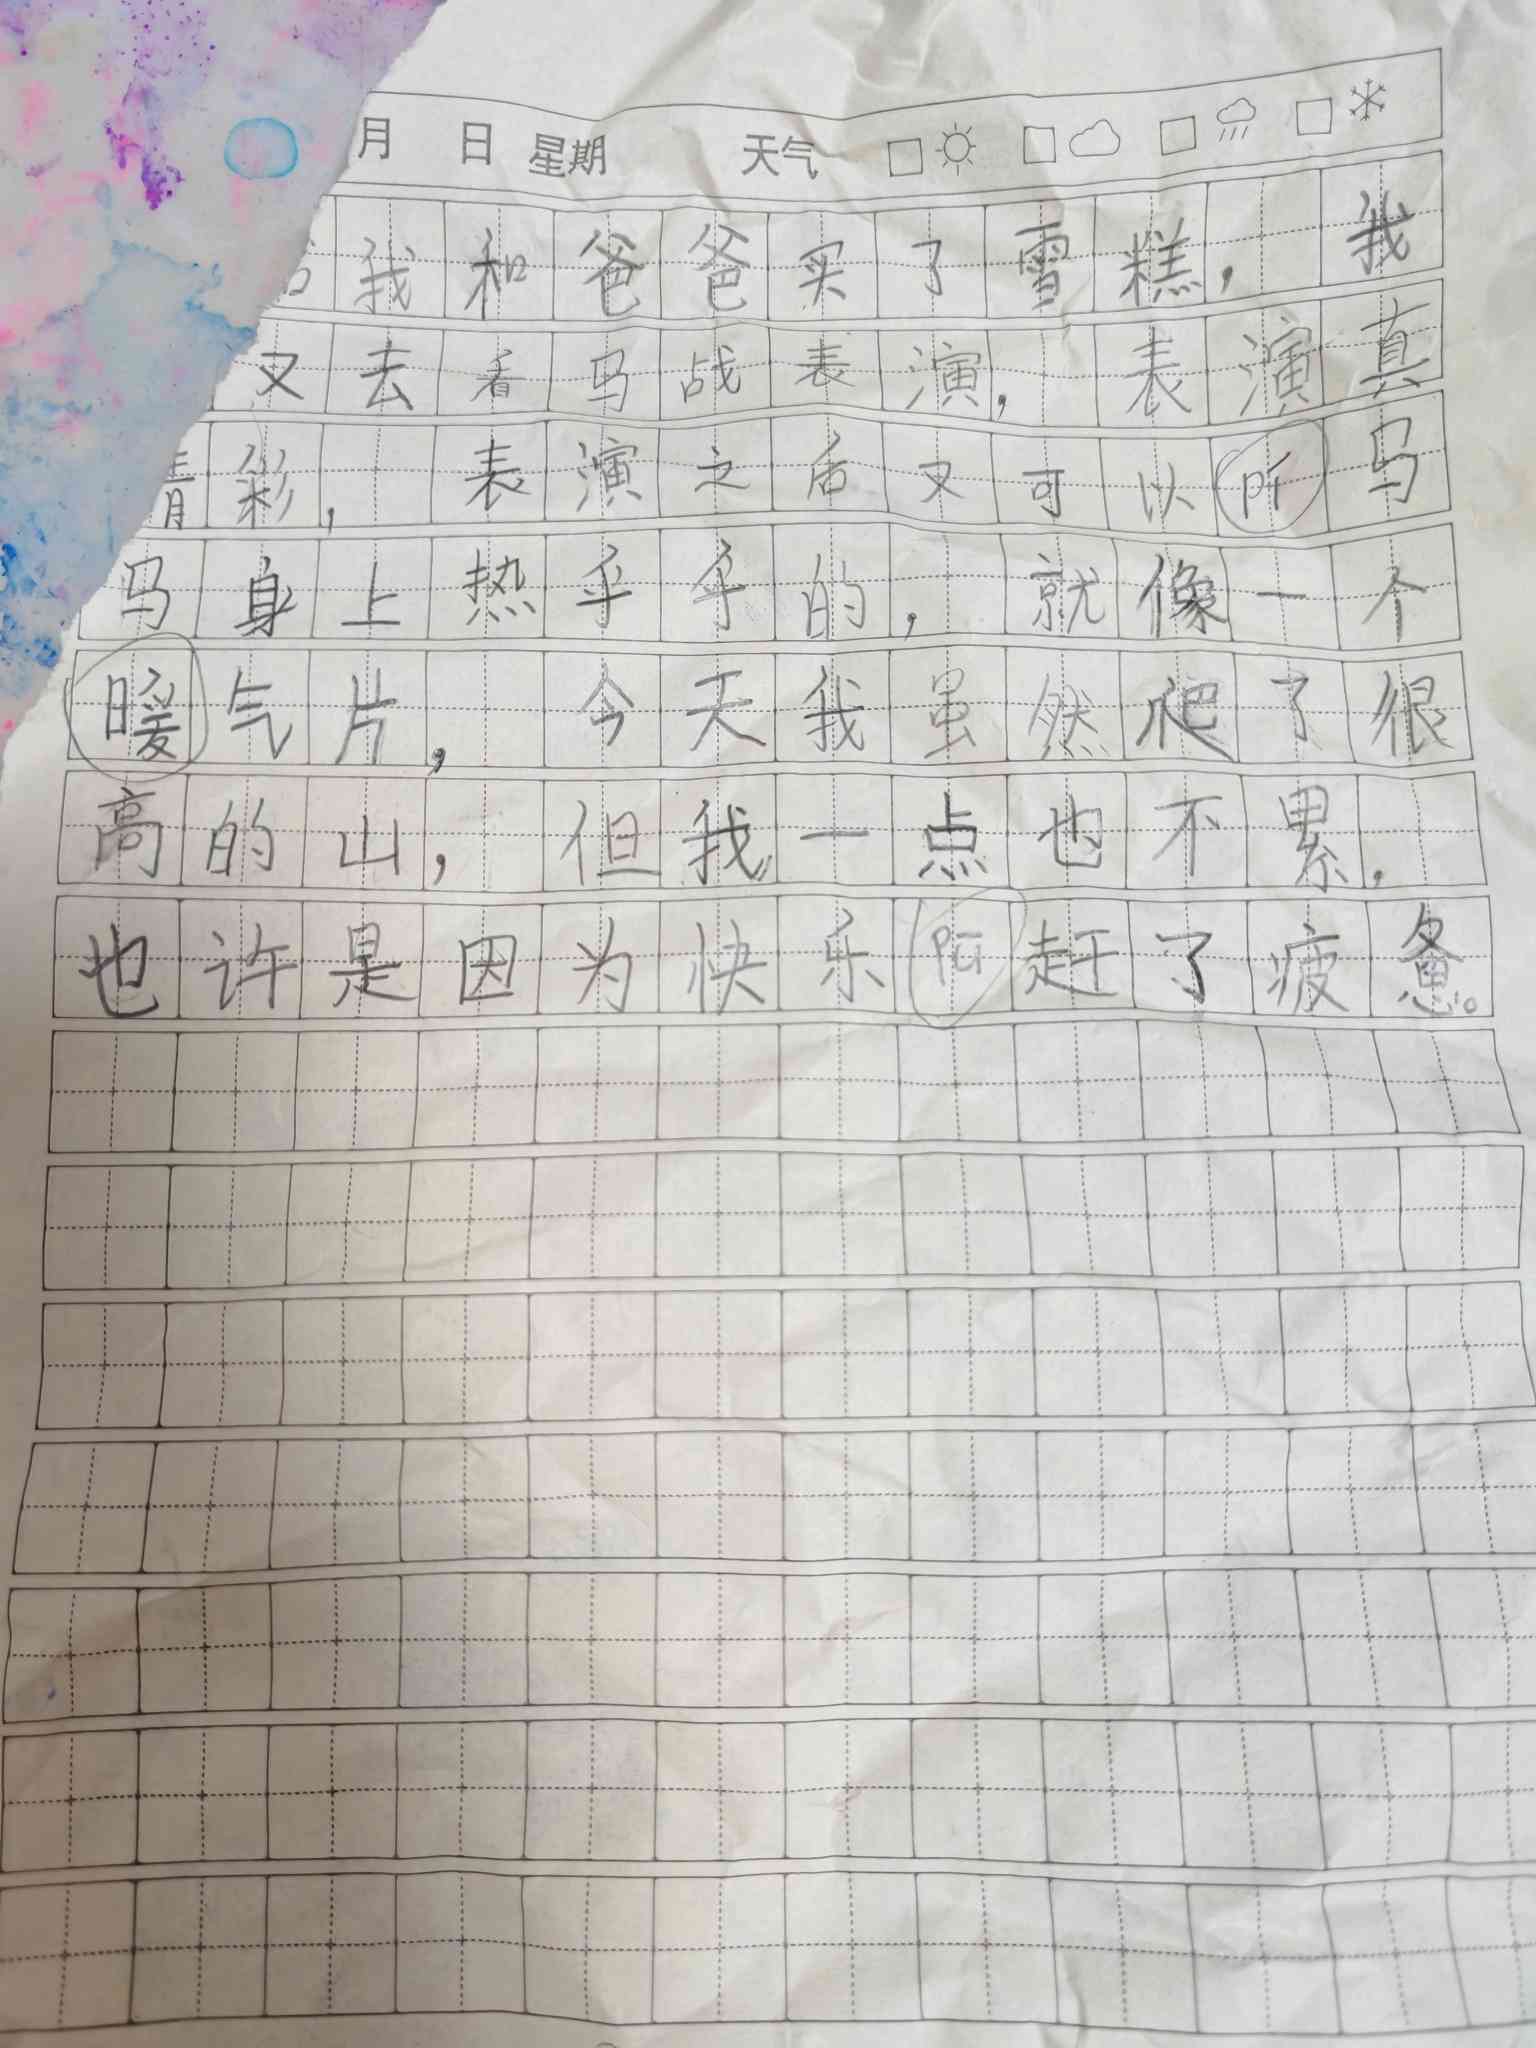 月 日 星期 天气
我和爸爸买了雪糕, 我
又去看马战表演, 表演真
精彩, 表演之后又可以听马
马身上热乎乎的, 就像一个
暖气片, 今天我虽然爬了很
高的山, 但我一点也不累,
也许是因为快乐 赶了疲惫。